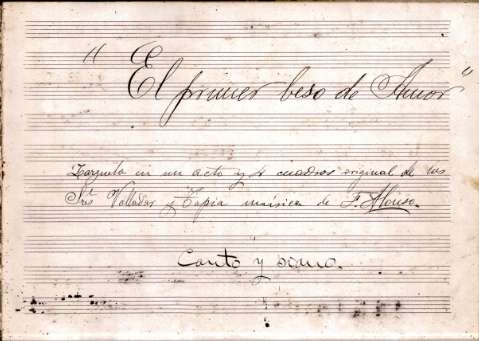 " El primer beso de Amor "
Zarzuela en un acto y 4 cuadros original de los
Sres Valladar y Tapia música de F. Alonso.
Canto y piano.